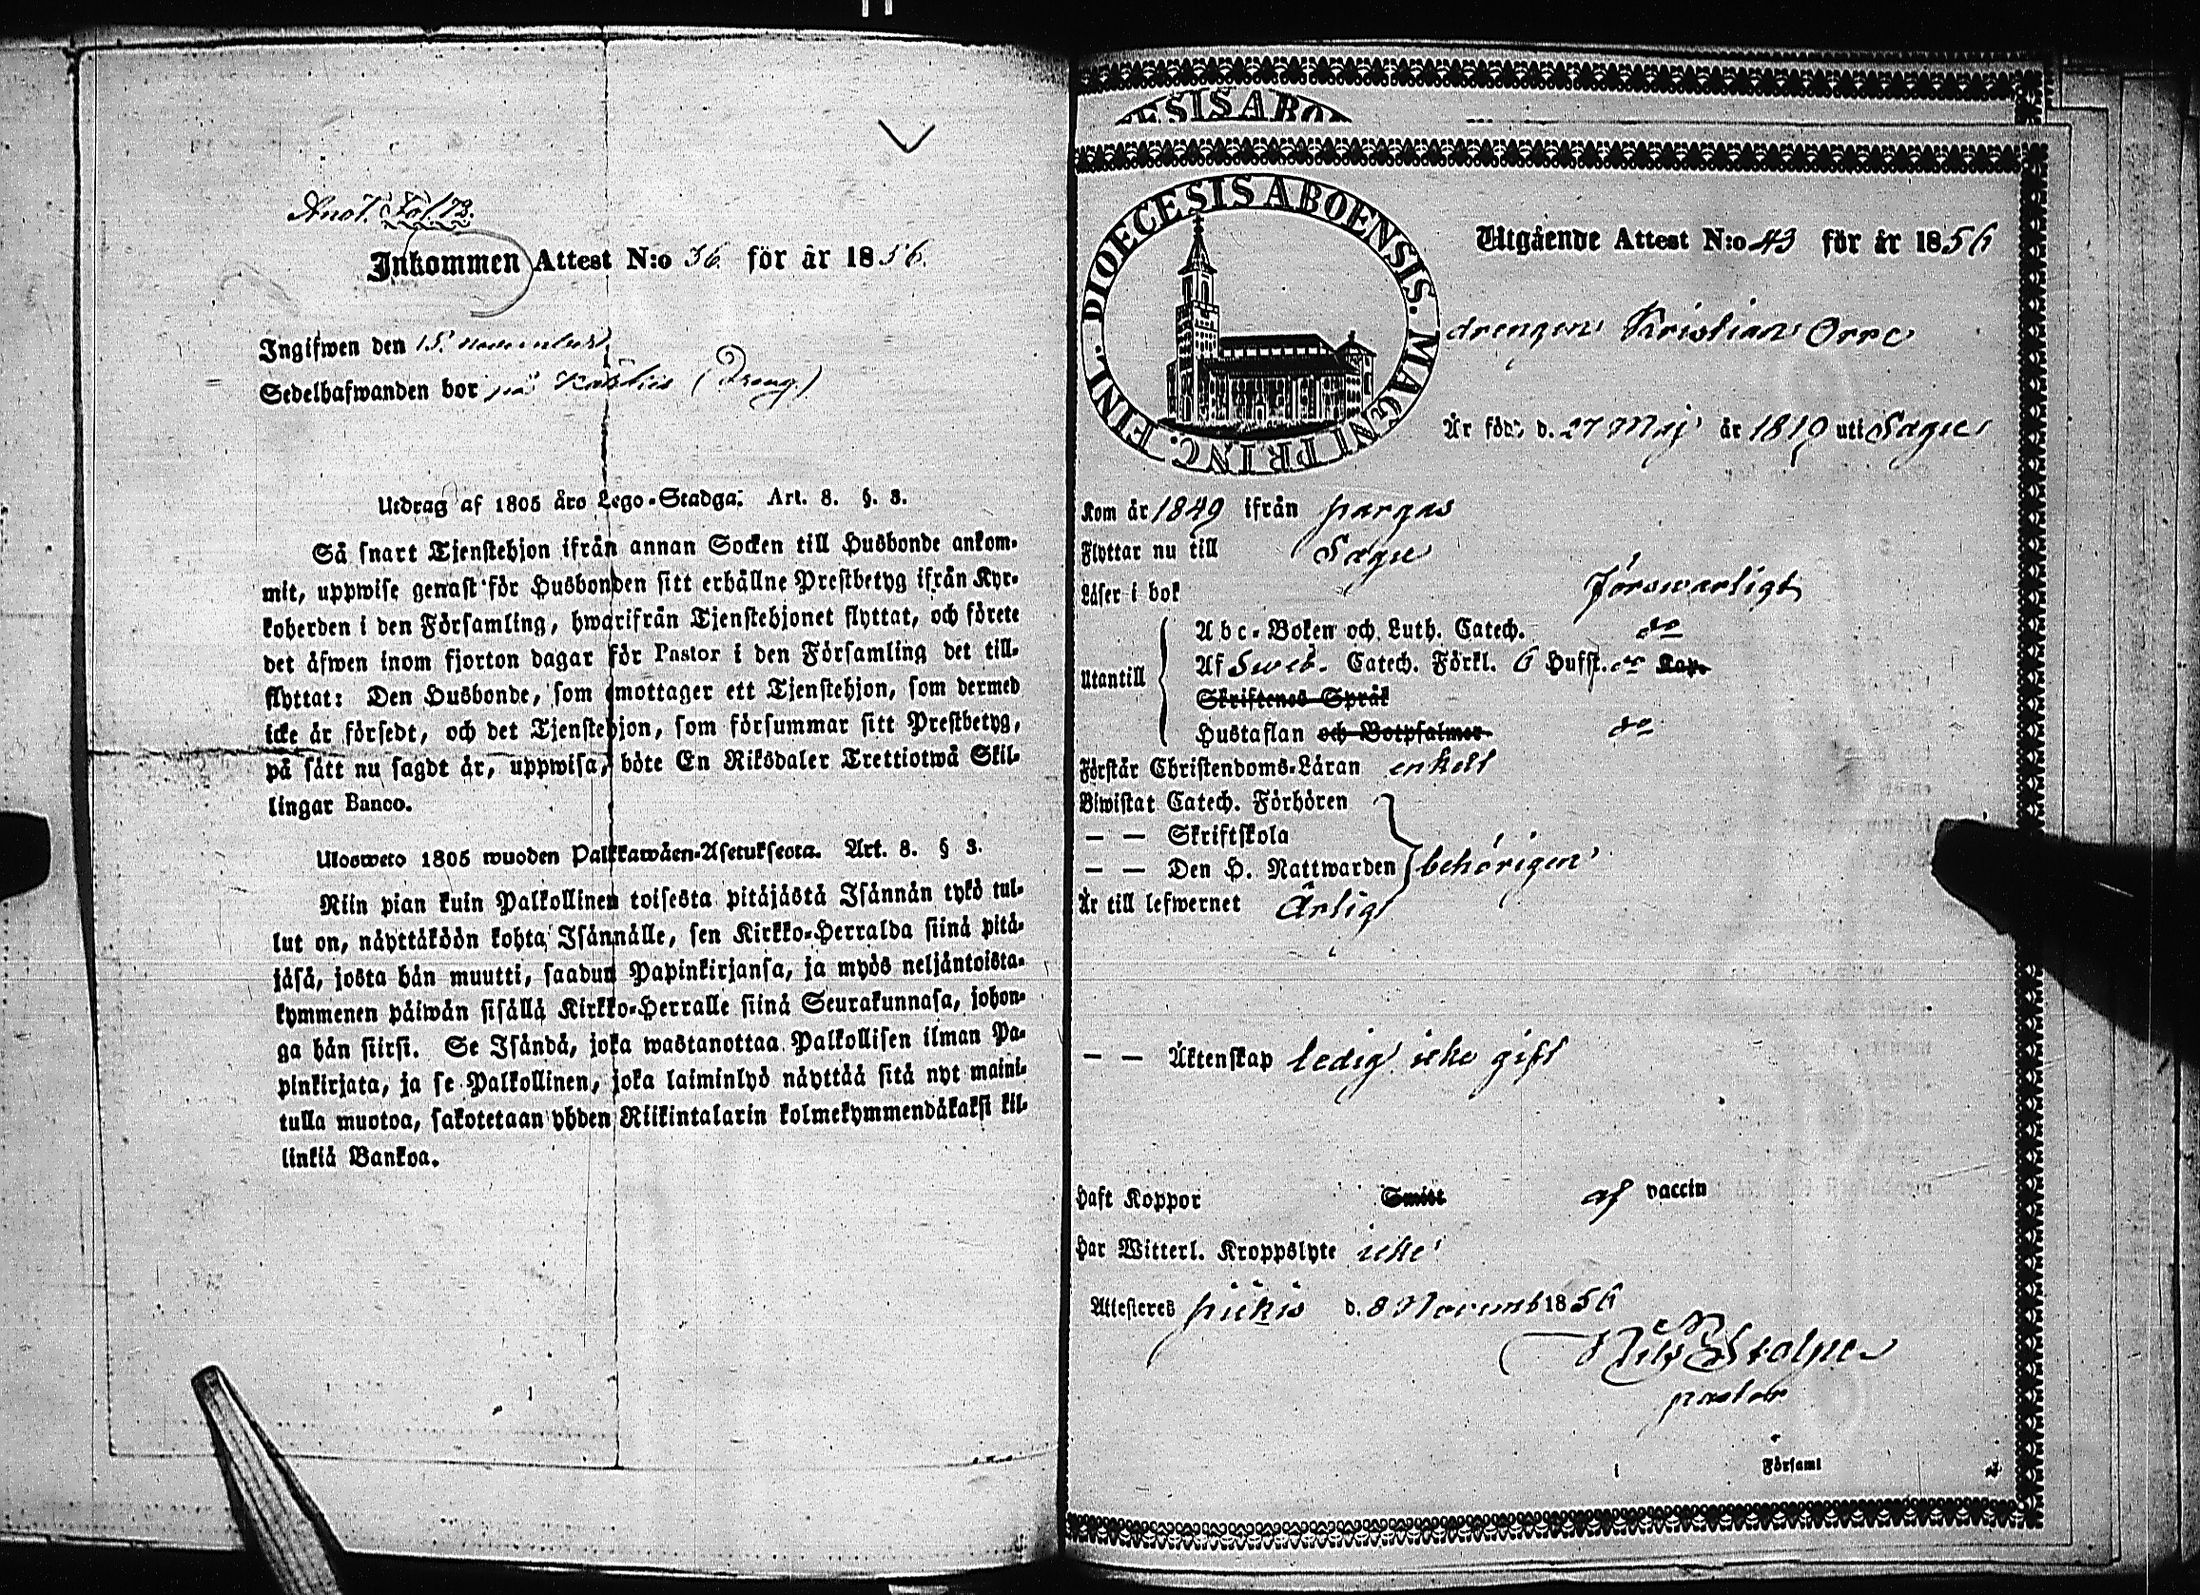 Anot. Fol 73.
Inkommen Attest N:o 36. för år 1856.
Ingifwen den 15. november
Sedelhafwanden bor på Karhis (Dreng)
Utdrag af 1805 års Lego-Stadga. Art. 8. §. 3.
Så snart Tjenstehjon ifrån annan Socken till Husbonde ankom-
mit, uppwise genast för Husbonden sitt erhållne Prestbetyg ifrån Kyr-
koherden i den Församling, hwarifrån Tjenstehjonet flyttat, och förete
det äfwen inom fjorton dagar för Pastor i den Församling det till-
flyttat: Den Husbonde, som emottager ett Tjenstehjon, som dermed
icke är försedt, och det Tjenstehjon, som försummar sitt Prestbetyg,
på sått nu sagdt är, uppwisa, böte En Riksdaler Trettiotwå Skil-
lingar Banco.
Ulosweto 1805 wuoden Palkkawåen-Asetuksesta. Art. 8. § 3.
Niin pian kuin Palkollinen toisesta pitåjåstå Isånnån tykö tul-
lut on, nåyttåköön kohta Isånnålle, sen Kirkko-Herralda siinå pitå-
jåså, josta hån muutti, saadun Papinkirjansa, ja myös neljåntoista-
kymmenen påiwån sisållå Kirkko-Herralle siinå Seurakunnasa, johon-
ga hån siirsi. Se Isåndå, joka wastanottaa Palkollisen ilman Pa-
pinkirjata, ja se Palkollinen, joka laiminlyö nåyttåå sitå nyt maini-
tulla muotoa, sakotetaan yhden Riikintalarin kolmekymmendåkaksi kil-
linkiå Bankoa.
ESIS ABO
DIOECESIS ABOENSIS. MAGNI PRINC. FINL.
Utgående Attest N:o 43 för år 1856
drengen Kristian Orre
År föd. d. 27 Maj år 1819 uti Sagu
Kom år 1849 ifrån pargas
Flyttar nu till Sagu
Läser i bok förswarligt
Utantill
Abc-Boken och Luth. Catech. do
Af Sweb. Catech. Förkl. 6 Hufst. do Kap.
Skriftenes Språk
Hustaflan och Botpsalmer do
Förstår Christendoms-Låran enkelt
Biwistat Catech. Förhören
— — Skriftskola
— — Den H. Nattwarden behörigen
År till lefwernet Ärligt
— — Äktenskap ledig icke gift
Haft Koppor Smitt af vaccin
Har Witterl. Kroppslyte icke
Attesteres piikis d. 8 Novemb 1856
Nils Stolpe
pastor
i Församl